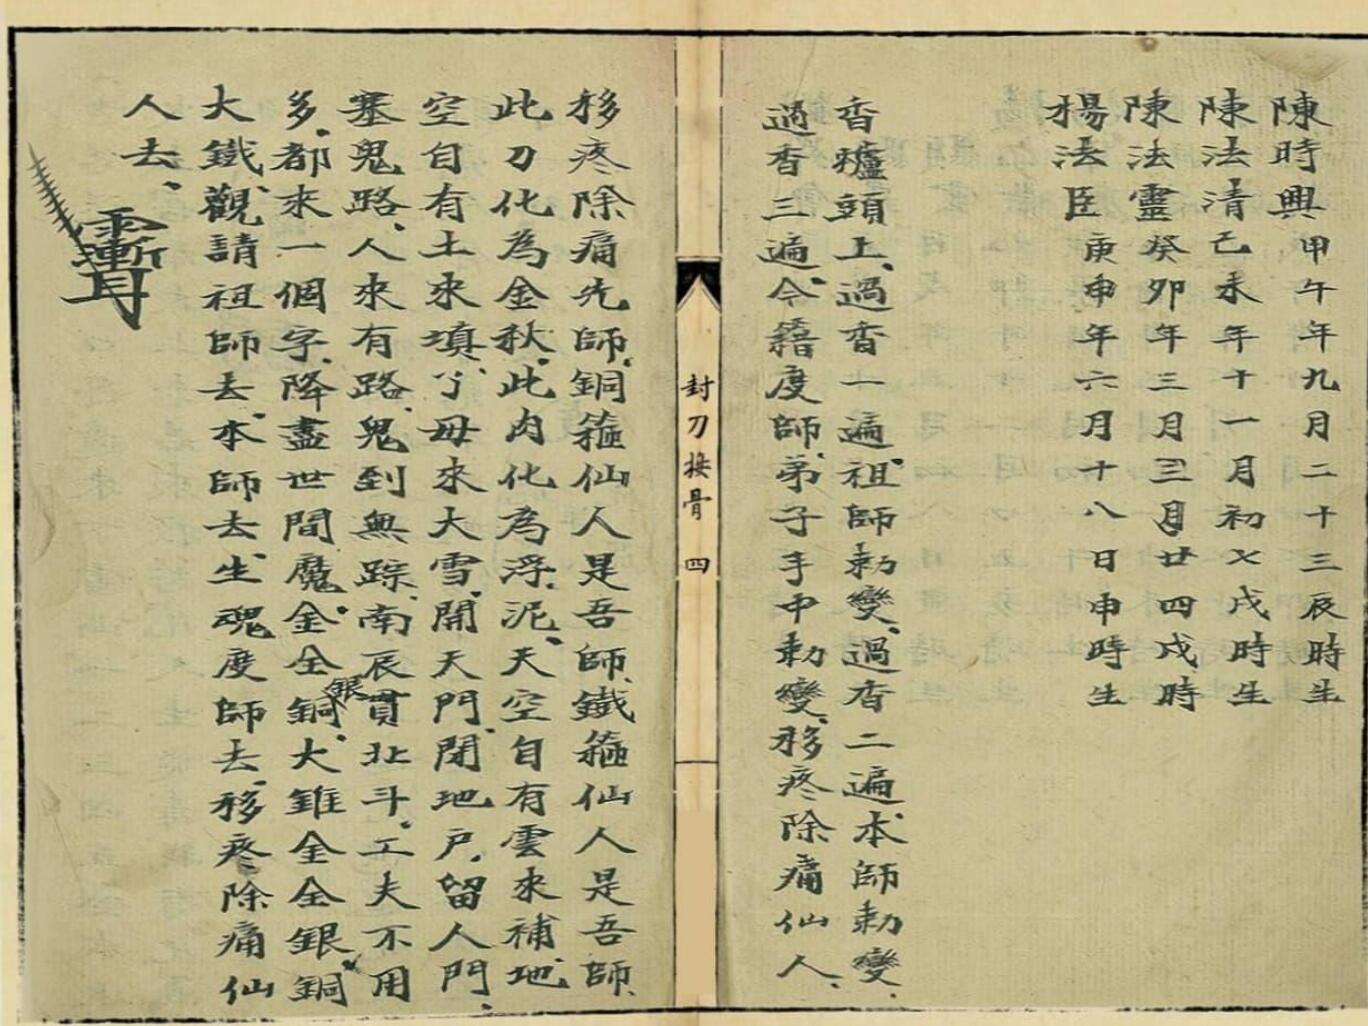 陳時興甲午年九月二十三辰時生
陳法清己未年十一月初七戌時生
陳法靈癸卯年三月三月廿四戌時
楊法臣庚申年六月十八日申時生
香爐頭上、過香一遍、祖師勅變、過香二遍、本師勅變、
過香三遍、今籍度師、弟子手中勅變、移疼除痛仙人、
封刀接骨 四
移疼除痛先師、銅箍仙人是吾師、鐵箍仙人是吾師、
此刀化為金秋、此肉化為浮泥、天空自有雲來補、地
空自有土來填、丫毋來大雪、開天門、閉地戶、留人門、
塞鬼路、人來有路、鬼到無踪、南辰貫北斗、工夫不用
多、都來一個字、降盡世間魔、金全銀銅、大錐金全銀銅
大鐵、觀請祖師去、本師去、生魂度師去、移疼除痛仙
人去、